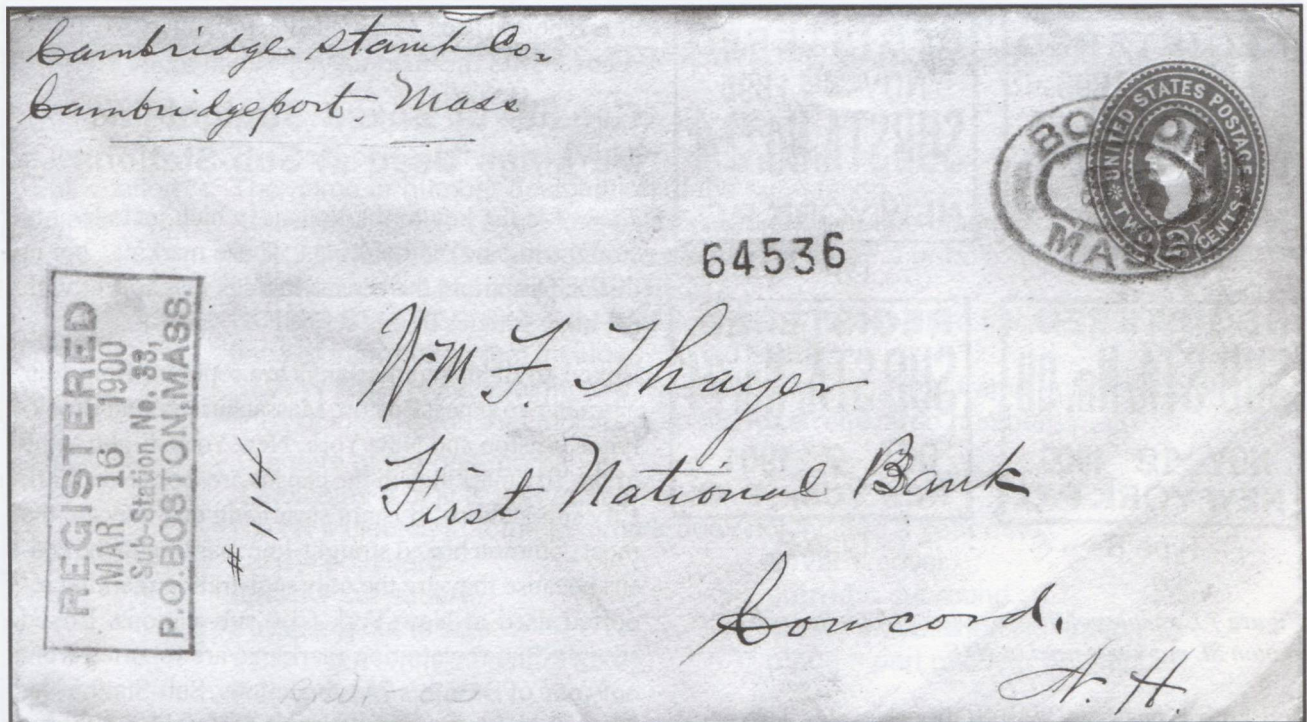 Cambridge Stamp Co.
Cambridgeport, Mass
BOSTON
MASS
UNITED STATES POSTAGE
TWO CENTS
64536
REGISTERED
MAR 16 1900
Sub-Station No. 33,
P.O. BOSTON, MASS.
# 114
Wm F. Thayer
First National Bank
Concord,
N. H.